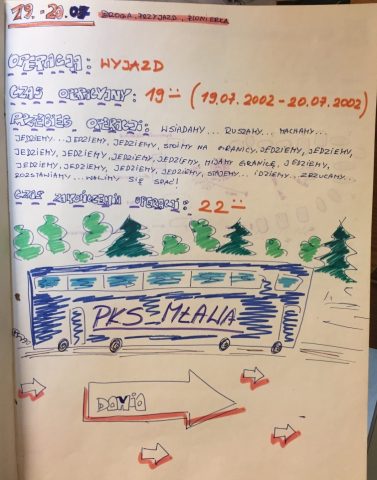 19.-20.07 DROGA, PRZYJAZD, PIONIERKA
OPERACJA: WYJAZD
CZAS OPERACYJNY: 19 00 (19.07.2002 - 20.07.2002)
PRZEBIEG OPERACJI: WSIADAMY... RUSZAMY... MACHAMY...
JEDZIEMY... JEDZIEMY, JEDZIEMY, STOIMY NA GRANICY, JEDZIEMY, JEDZIEMY,
JEDZIEMY, JEDZIEMY, JEDZIEMY, JEDZIEMY, MIJAMY GRANICĘ, JEDZIEMY,
JEDZIEMY, JEDZIEMY, JEDZIEMY, JEDZIEMY, STAJEMY... IDZIEMY... ZRZUCAMY...
ROZSTAWIAMY... WALIMY SIĘ SPAĆ!
CZAS ZAKOŃCZENIA OPERACJI: 22 00
PKS MŁAWA